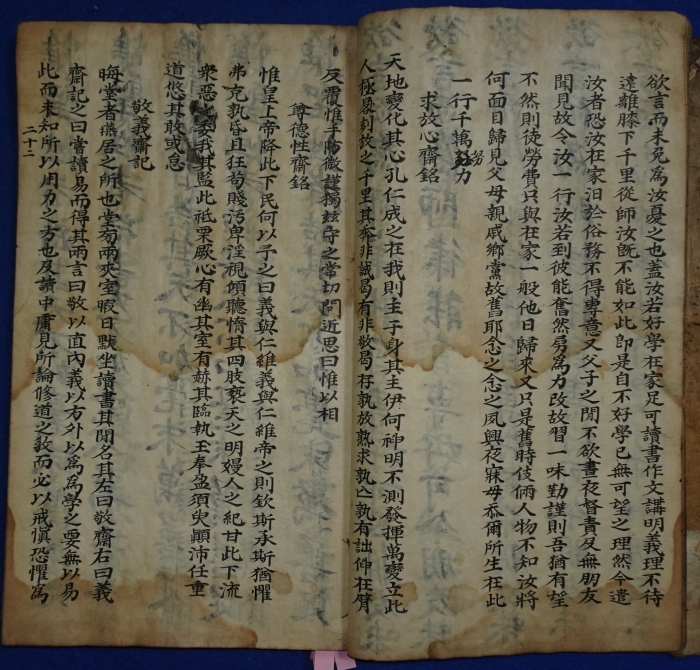 欲言而未免爲汝憂之也蓋汝若好學在家足可讀書作文講明義理不待
遠離膝下千里從師汝旣不能如此卽是自不好學已無可望之理然今遣
汝者恐汝在家汩於俗務不得專意又父子之間不欲晝夜督責及無朋友
聞見故令汝一行汝若到彼能奮然勇爲力改故習一味勤謹則吾猶有望
不然則徒勞費只與在家一般他日歸來又只是舊時伎倆人物不知汝將
何面目歸見父母親戚鄕黨故舊耶念之念之夙興夜寐毋忝爾所生在此
一行千萬努力
求放心齋銘
天地變化其心孔仁成之在我則主于身其主伊何神明不測發揮萬變立此
人極晷刻放之千里其奔非誠曷有非敬曷存孰放熟求孰亾孰有詘伸在臂
反覆惟手防微謹獨玆守之常切問近思曰惟以相
尊德性齋銘
惟皇上帝降此下民何以予之曰義與仁維義與仁維帝之則欽斯承斯猶懼
弗克孰昏且狂苟賤汚卑淫視傾聽惰其四肢褻天之明嫚人之紀甘此下流
衆惡之委我其監此祗栗厥心有幽其室有赫其臨執玉奉盈須臾顚沛任重
道悠其敢或怠
敬義齋記
晦堂者燕居之所也堂旁兩夾室暇日默坐讀書其間名其左曰敬齋右曰義
齋記之曰嘗讀易而得其兩言曰敬以直內義以方外以爲爲學之要無以易
此而未知所以用力之方也及讀中庸見所論修道之敎而必以戒愼恐懼爲
二十二